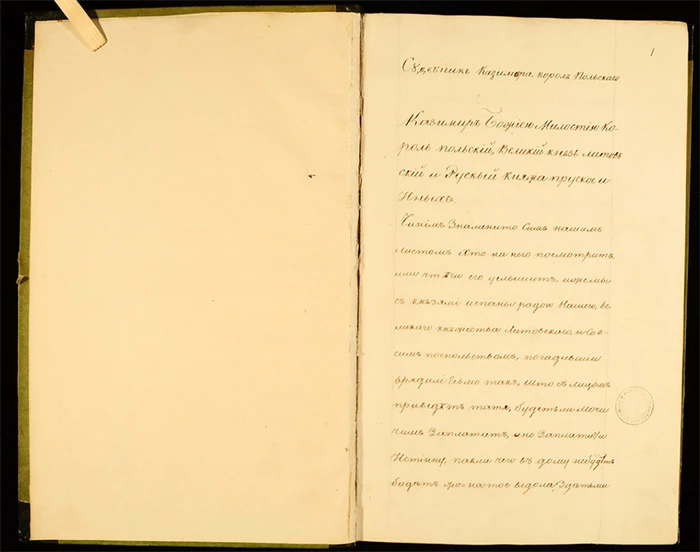 1
Судебникъ Казимѣра короля Польскаго
Казимиръ Божіею Милостію Ко-
роль польскій, Великій князь литовъ
скій и Рускый княжа пруское и
Иныхъ.
Чинимъ Знаменито Симъ нашимъ
листомъ хто на него посмотритъ
или чтучи его услышитъ, ижесмы
съ князями ипаны радою Нашею, ве
ликого княжства Литовского, и Со
симъ поспольствомъ, погадавши
врядили Есьмо такъ, што съ лицомъ
приведутъ татя, будетъли мочи
чимъ Заплатитъ, ино Заплатити
Истинну, пакли чего въ дому небудетъ
тое вѣдома, Здѣтьми